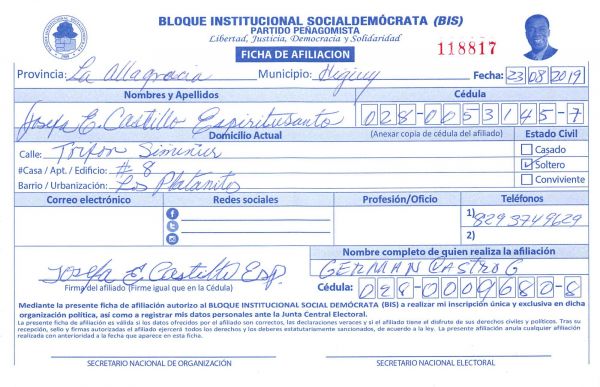 BLOQUE INSTITUCIONAL SOCIALDEMÓCRATA (BIS)
PARTIDO PEÑAGOMISTA
Libertad, Justicia, Democracia y Solidaridad
FICHA DE AFILIACION
118817
Provincia: La Altagracia Municipio: Higüey Fecha: 23 08 2019
Nombres y Apellidos Cédula
Josefa E. Castillo Espiritusanto 028-0053145-7
Domicilio Actual (Anexar copia de cédula del afiliado) Estado Civil
Calle: Casado
#Casa / Apt. / Edificio: # 8 Soltero
Barrio / Urbanización: Los Platanitos Conviviente
Correo electrónico Redes sociales Profesión/Oficio Teléfonos
1) 8293749629
2)
Nombre completo de quien realiza la afiliación
GERMAN CASTRO G
Josefa E. Castillo Esp.
Firma del afiliado (Firme igual que en la Cédula) Cédula: 028-0009680-8
Mediante la presente ficha de afiliación autorizo al BLOQUE INSTITUCIONAL SOCIAL DEMÓCRATA (BIS) a realizar mi inscripción única y exclusiva en dicha
organización política, así como a registrar mis datos personales ante la Junta Central Electoral.
La presente ficha de afiliación es válida si los datos ofrecidos por el afiliado son correctos, las declaraciones veraces y si el afiliado tiene el disfrute de sus derechos civiles y políticos. Tras su
recepción, sello y firmas autorizadas el afiliado ejercerá todos los derechos y los deberes estatutariamente sancionados, de acuerdo a la ley. La presente afiliación anula cualquier afiliación
realizada con anterioridad a la fecha que aparece en esta ficha.
SECRETARIO NACIONAL DE ORGANIZACIÓN SECRETARIO NACIONAL ELECTORAL